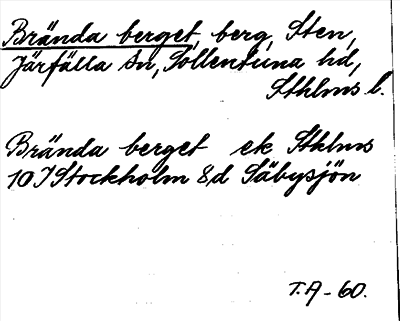 Brända berget, berg, Sten,
Järfälla sn, Sollentuna hd,
Sthlms l.
Brända berget ek Sthlms
10 I Stockholm 8d Säbysjön
T.A-60.